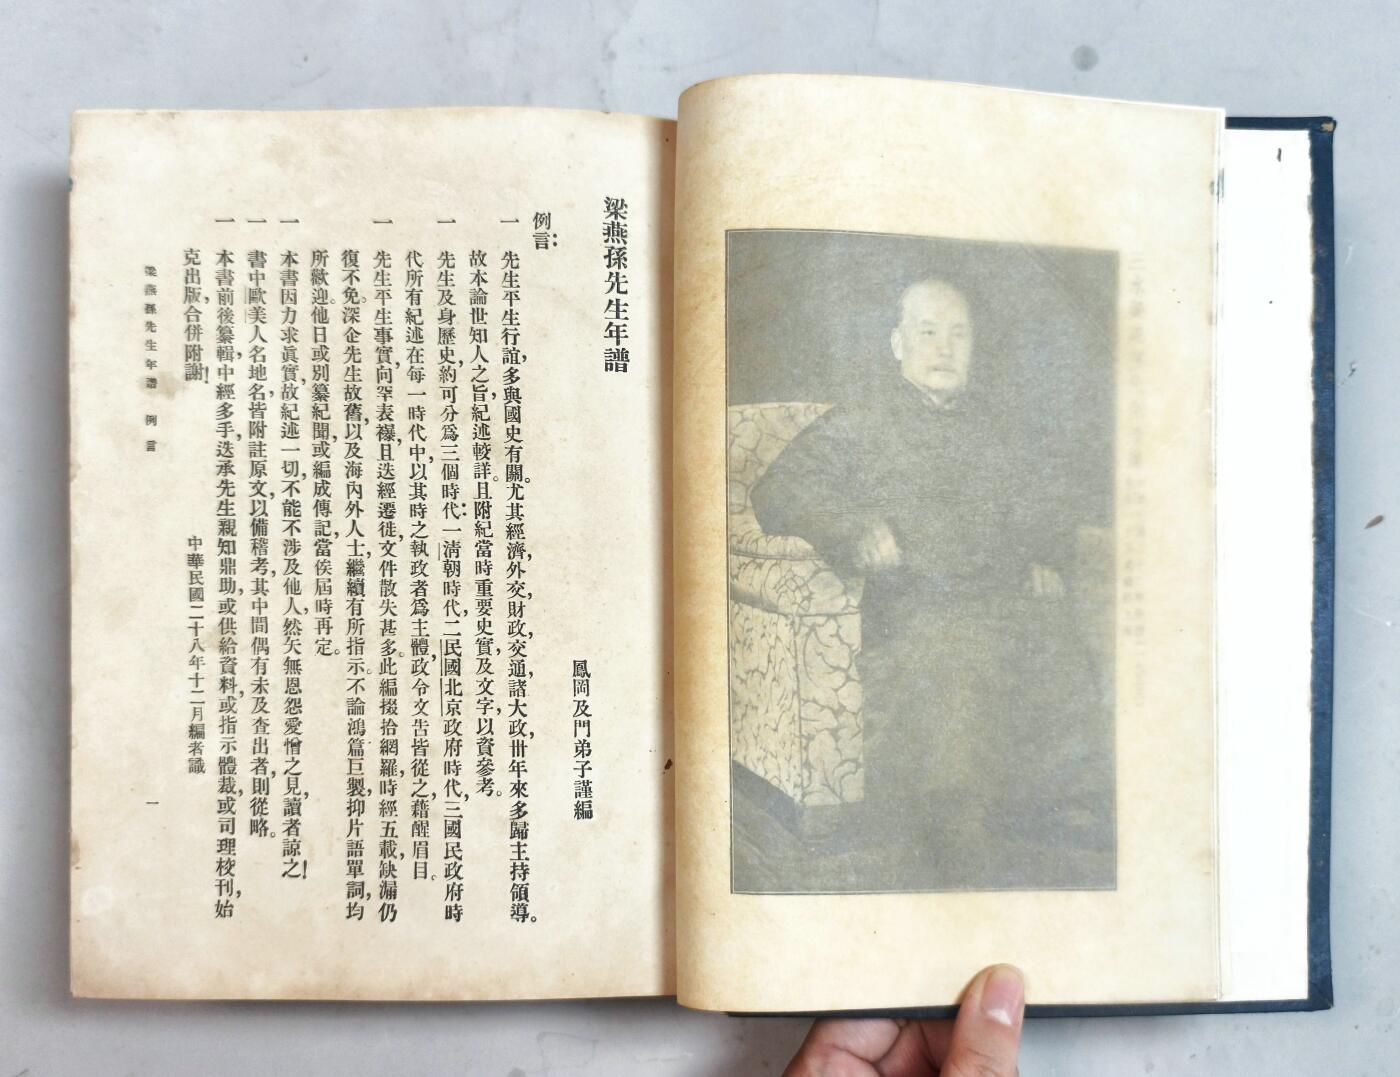 梁燕孫先生年譜
鳳岡及門弟子謹編
例言：
一　先生平生行誼，多與國史有關。尤其經濟，外交，財政，交通，諸大政，卅年來多歸主持領導。
故本論世知人之旨，紀述較詳。且附紀當時重要史實，及文字，以資參考。
一　先生及身歷史，約可分爲三個時代：一清朝時代，二民國北京政府時代，三國民政府時
代。所有紀述在每一時代中，以其時之執政者爲主體，政令文告皆從之，藉醒眉目。
一　先生平生事實，向罕表襮，且迭經遷徙，文件散失甚多。此編掇拾網羅，時經五載，缺漏仍
復不免。深企先生故舊，以及海內外人士，繼續有所指示。不論鴻篇巨製，抑片語單詞，均
所歡迎。他日或別纂紀聞，或編成傳記，當俟屆時再定。
一　本書因力求眞實，故紀述一切，不能不涉及他人，然矢無恩怨愛憎之見，讀者諒之！
一　書中歐美人名地名，皆附註原文，以備稽考，其中間偶有未及查出者，則從略。
一　本書前後纂輯，中經多手，迭承先生親知鼎助，或供給資料，或指示體裁，或司理校刊，始
克出版，合併附謝！
中華民國二十八年十二月編者識
梁燕孫先生年譜　例言
一